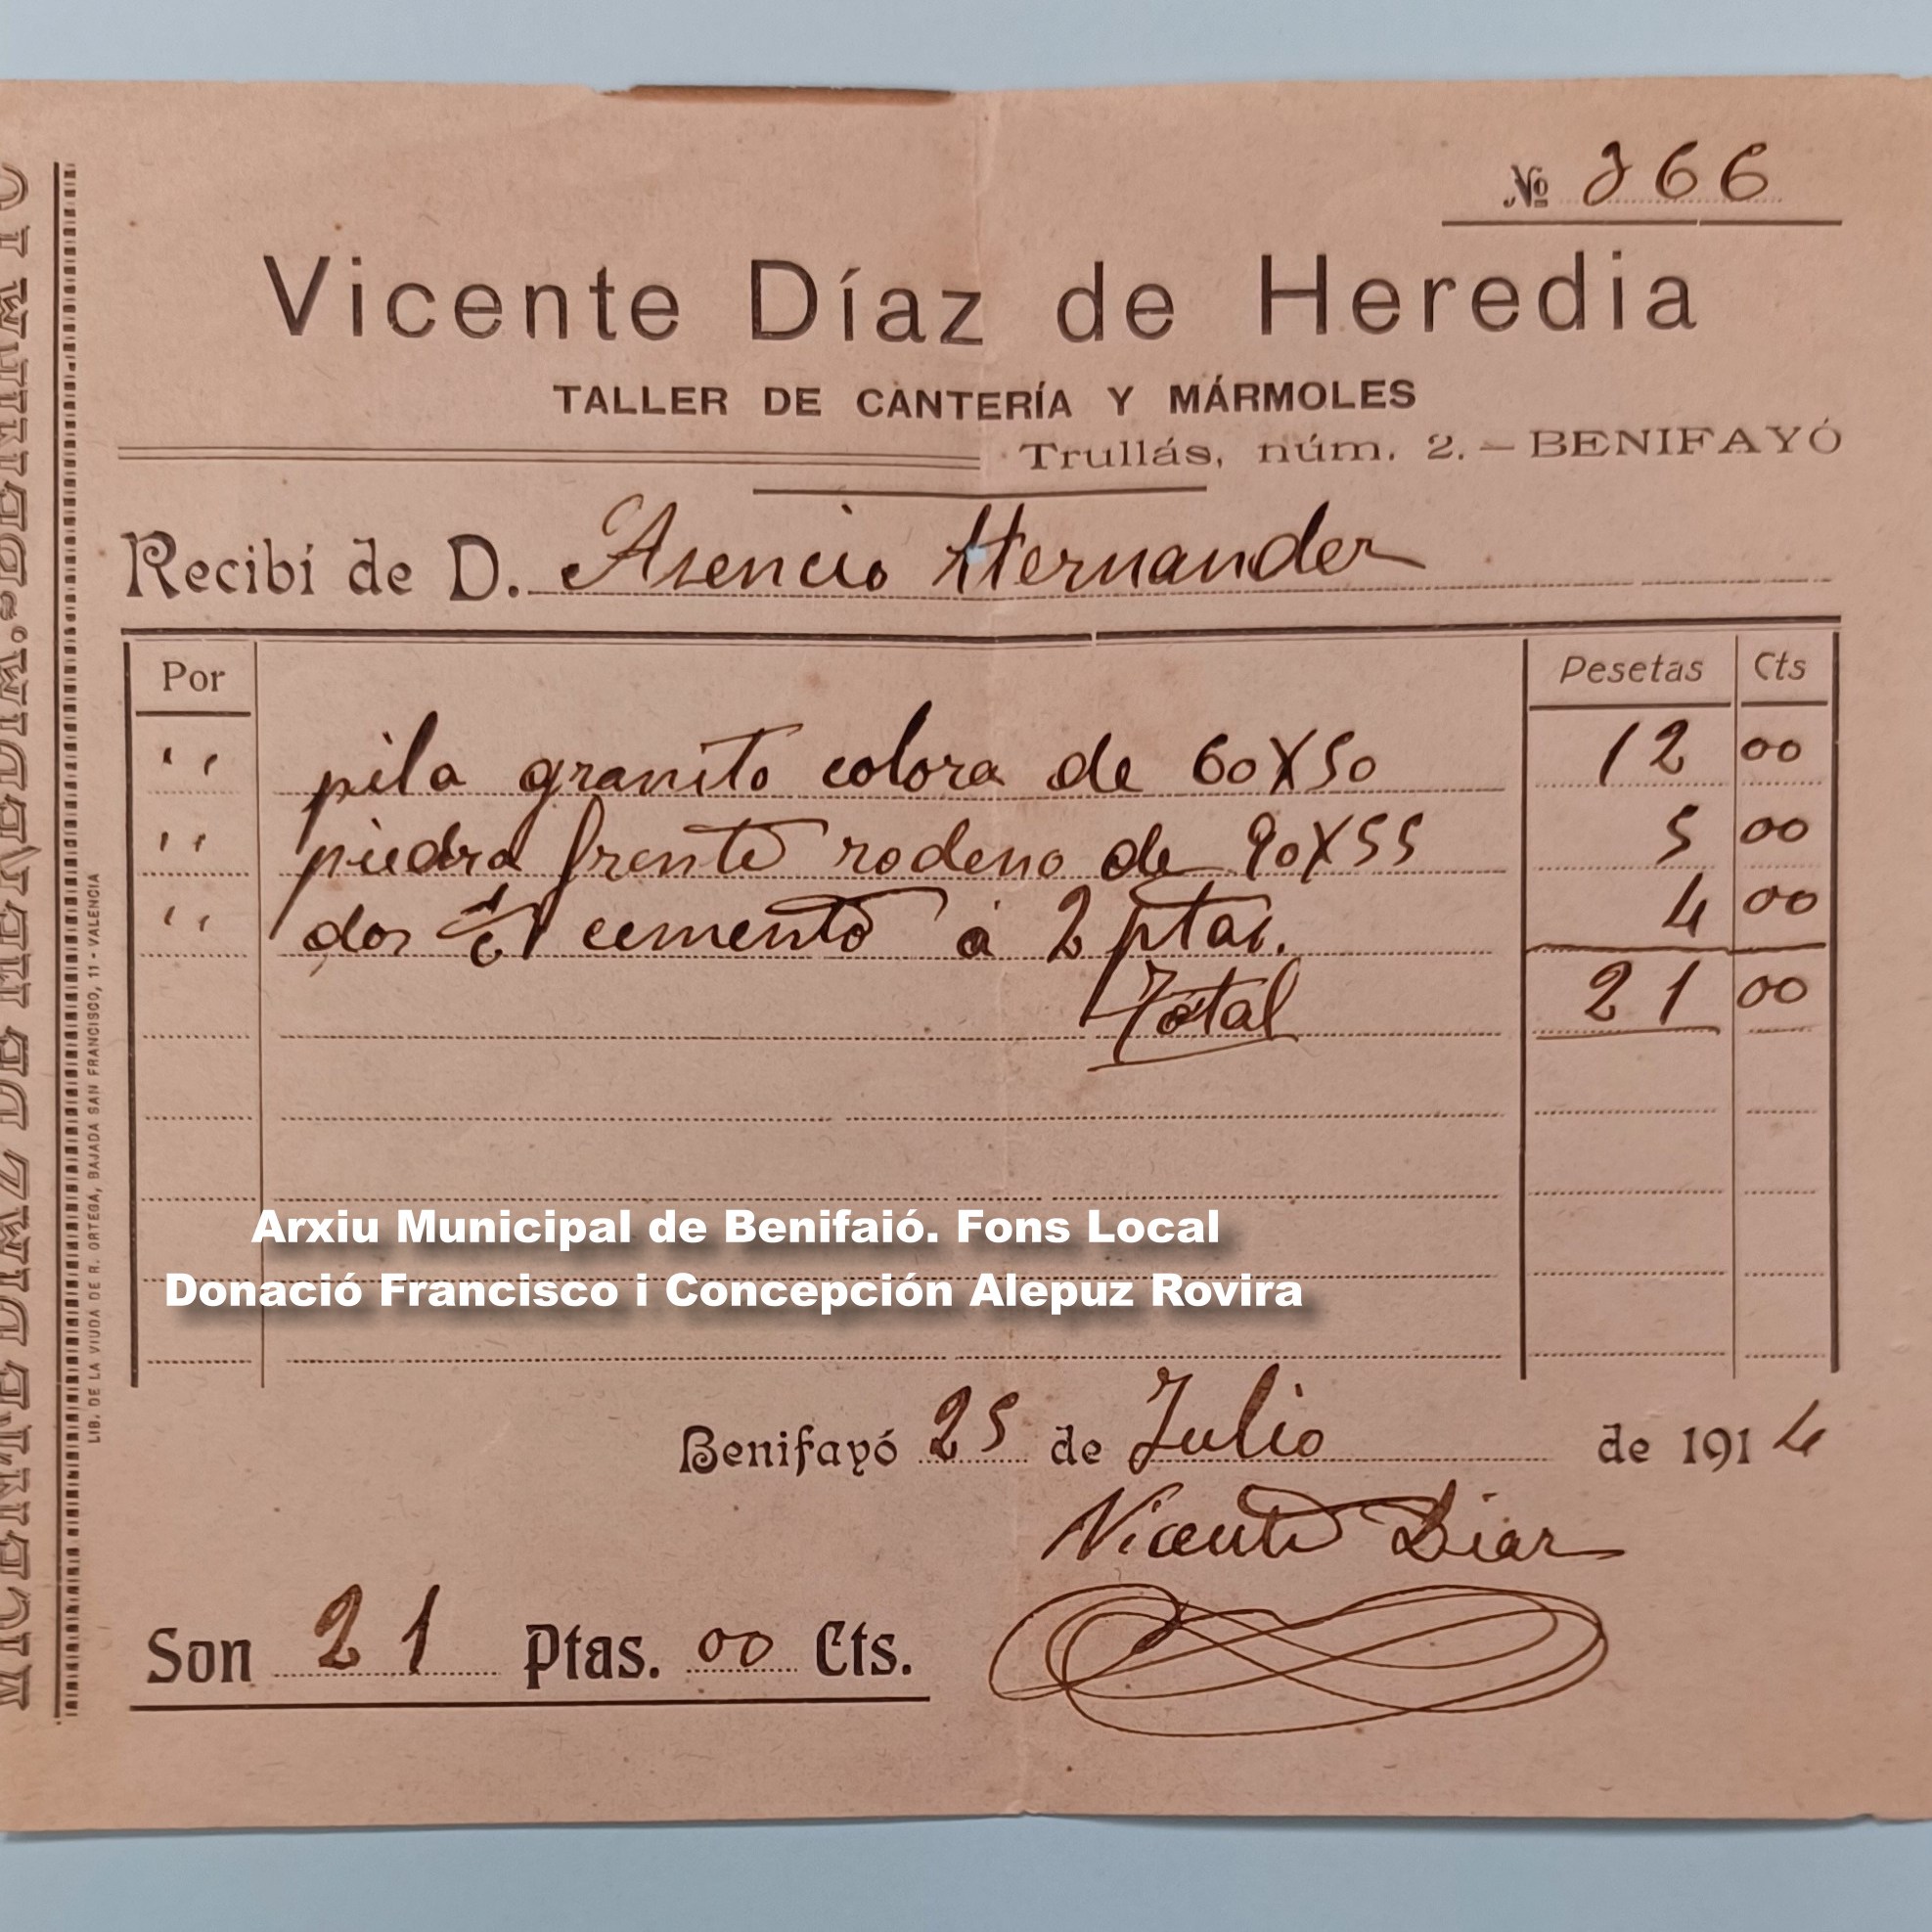 Nº 266
Vicente Díaz de Heredia
TALLER DE CANTERÍA Y MÁRMOLES
Trullás, núm. 2. — BENIFAYÓ
Recibí de D. Asencio Hernander
Por Pesetas Cts
" pila granito colora de 60X50 12 00
" piedra frente rodeno de 90X55 5 00
" dos cemento á 2 ptas. 4 00
Total 21 00
Arxiu Municipal de Benifaió. Fons Local
Donació Francisco i Concepción Alepuz Rovira
Benifayó 25 de Julio de 1914
Vicente Diaz
Son 21 Ptas. 00 Cts.
LIB. DE LA VIUDA DE R. ORTEGA, BAJADA SAN FRANCISCO, 11 - VALENCIA